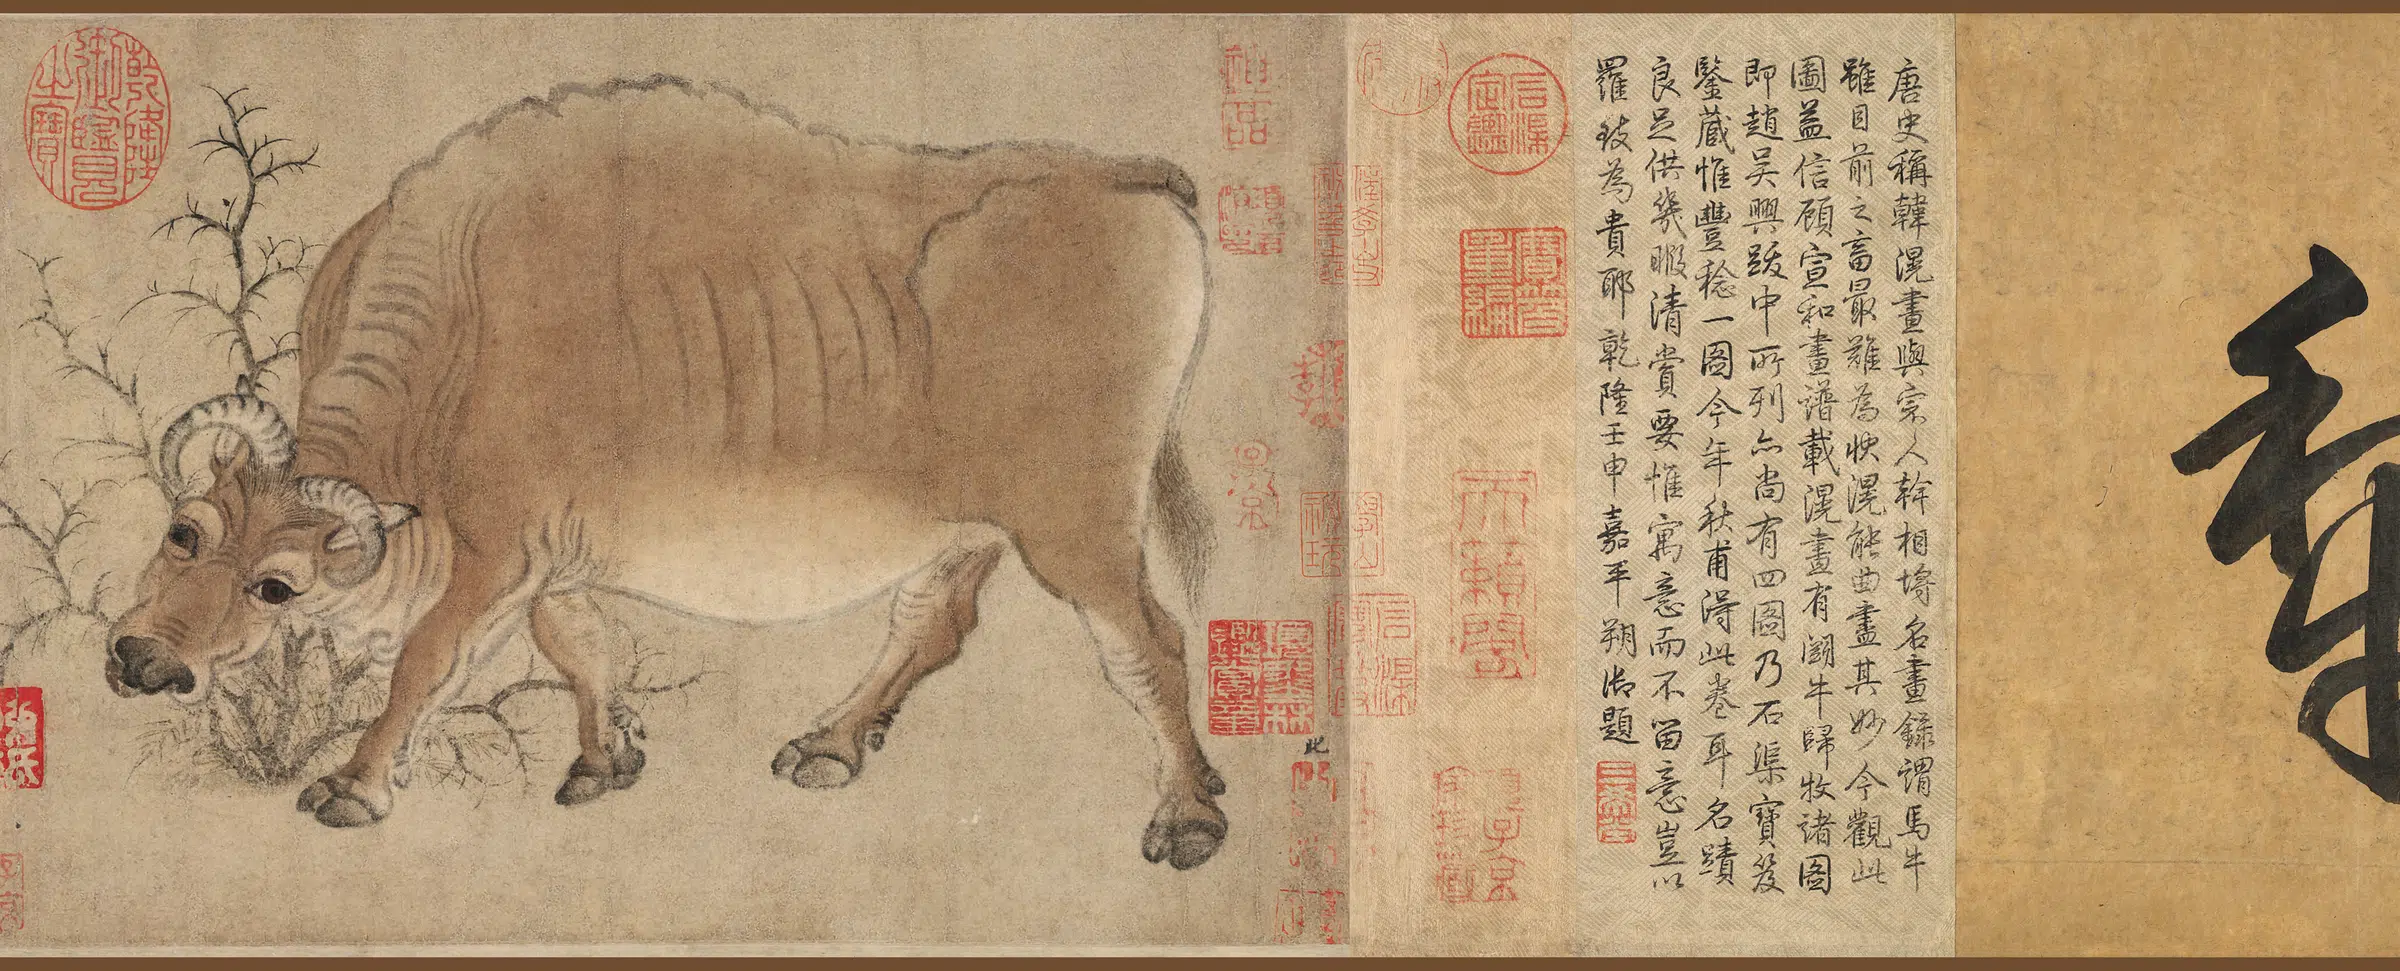 唐史稱韓滉畫與宗人幹相埒名畫錄謂馬牛
雖目前之畜最難為狀滉能曲盡其妙今觀此
圖益信顧宣和畫譜載滉畫有鬭牛歸牧諸圖
即趙吳興跋中所列亦尚有四圖乃石渠寶笈
鑒藏惟豐稔一圖今年秋甫得此卷耳名蹟
良足供幾暇清賞要惟寓意而不留意豈以
羅致為貴耶乾隆壬申嘉平朔御題
石渠定鑑
寶笈重編
天籟閣
神品
此
乾隆御覽之寶